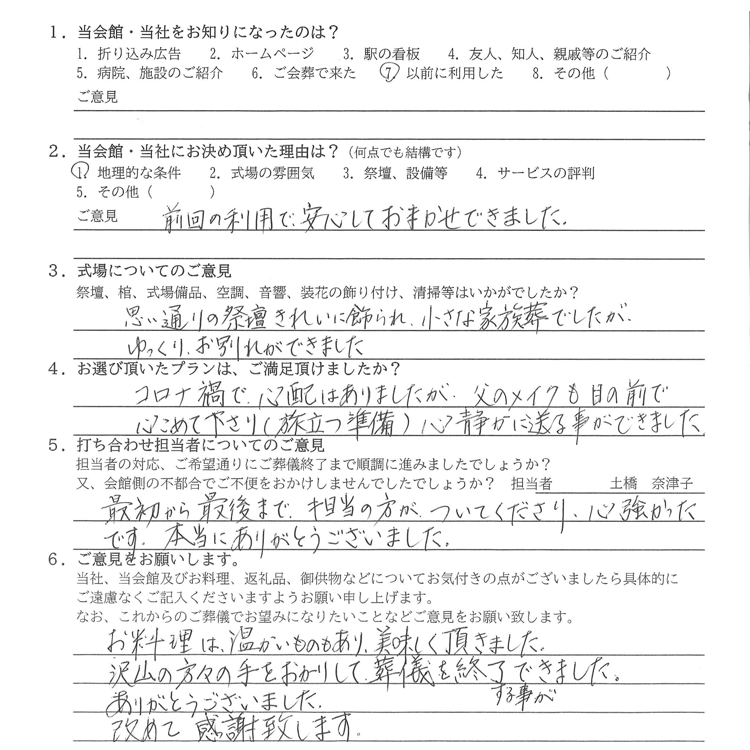 1．当会館・当社をお知りになったのは？
1．折り込み広告　2．ホームページ　3．駅の看板　4．友人、知人、親戚等のご紹介
5．病院、施設のご紹介　6．ご会葬で来た　7　以前に利用した　8．その他（　　　　）
ご意見
2．当会館・当社にお決め頂いた理由は？（何点でも結構です）
1　地理的な条件　2．式場の雰囲気　3．祭壇、設備等　4．サービスの評判
5．その他（　　　　）
ご意見　前回の利用で、安心しておまかせできました。
3．式場についてのご意見
祭壇、棺、式場備品、空調、音響、装花の飾り付け、清掃等はいかがでしたか？
思い通りの祭壇きれいに飾られ、小さな家族葬でしたが、
ゆっくり、お別れができました
4．お選び頂いたプランは、ご満足頂けましたか？
コロナ禍で、心配はありましたが、父のメイクも目の前で
心こめて下さり（旅立つ準備）心静かに送る事ができました
5．打ち合わせ担当者についてのご意見
担当者の対応、ご希望通りにご葬儀終了まで順調に進みましたでしょうか？
又、会館側の不都合でご不便をおかけしませんでしたでしょうか？　担当者　土橋　奈津子
最初から最後まで、担当の方が、ついてくださり、心強かった
です。本当にありがとうございました。
6．ご意見をお願いします。
当社、当会館及びお料理、返礼品、御供物などについてお気付きの点がございましたら具体的に
ご遠慮なくご記入くださいますようお願い申し上げます。
なお、これからのご葬儀でお望みになりたいことなどご意見をお願い致します。
お料理は、温かいものもあり、美味しく頂きました。
沢山の方々の手をおかりして、葬儀を終了できました。
する事が
ありがとうございました。
改めて感謝致します。